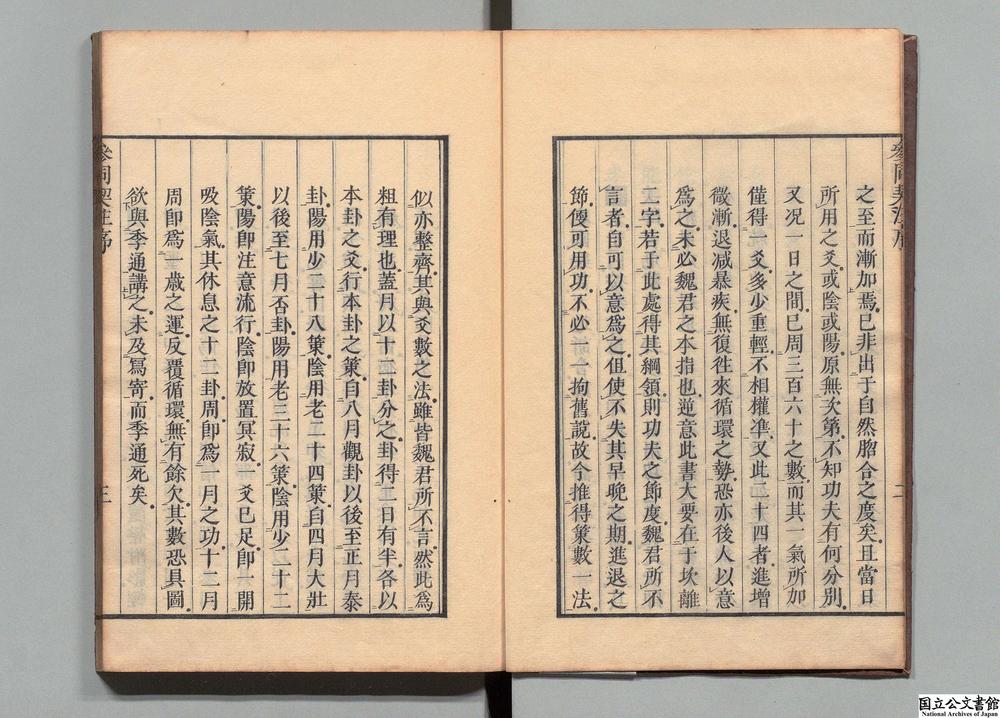 之至而漸加焉已非出于自然脗合之度矣且當日
所用之爻或陰或陽原無次第不知功夫有何分別
又况一日之間已周三百六十之數而其一氣所加
僅得一爻多少重輕不相權凖又此二十四者進增
微漸退减暴疾無復徃來循環之勢恐亦後人以意
爲之未必魏君之本指也逆意此書大要在于坎離
二字若于此處得其綱領則功夫之節度魏君所不
言者自可以意爲之但使不失其早晚之期進退之
節便可用功不必一一拘舊說故今推得策數一法
似亦整齊其與爻數之法雖皆魏君所不言然此爲
粗有理也蓋月以十二卦分之卦得二日有半各以
本卦之爻行本卦之策自八月觀卦以後至正月泰
卦陽用少二十八策陰用老二十四策自四月大壯
以後至七月否卦陽用老三十六策陰用少三十二
策陽卽注意流行陰卽放置冥寂一爻已足卽一開
吸陰氣其休息之十二卦周卽爲一月之功十二月
周卽爲一歲之運反覆循環無有餘欠其數恐具圖
欲與季通講之未及寫寄而季通死矣
參同契注序
二
參同契注序
三
国立公文書館
National Archives of Japan